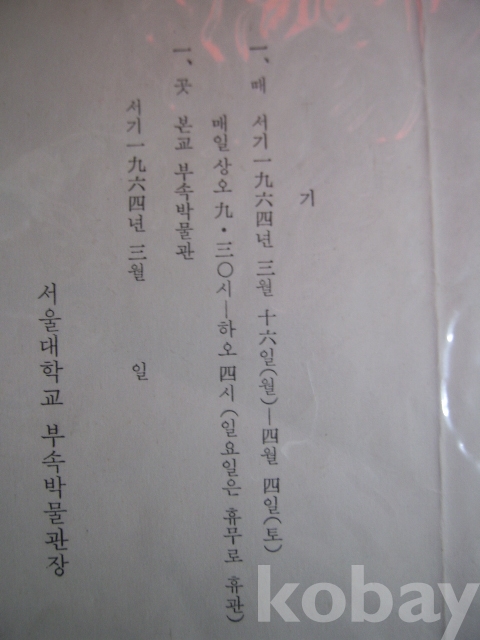 기
一、때 서기一九六四年 三월 十六일(월)—四월 四일(토)
매일 상오 九·三〇시—하오 四시(일요일은 휴무로 휴관)
一、곳 본교 부속박물관
서기一九六四년 三월 일
서울대학교 부속박물관장
kobay